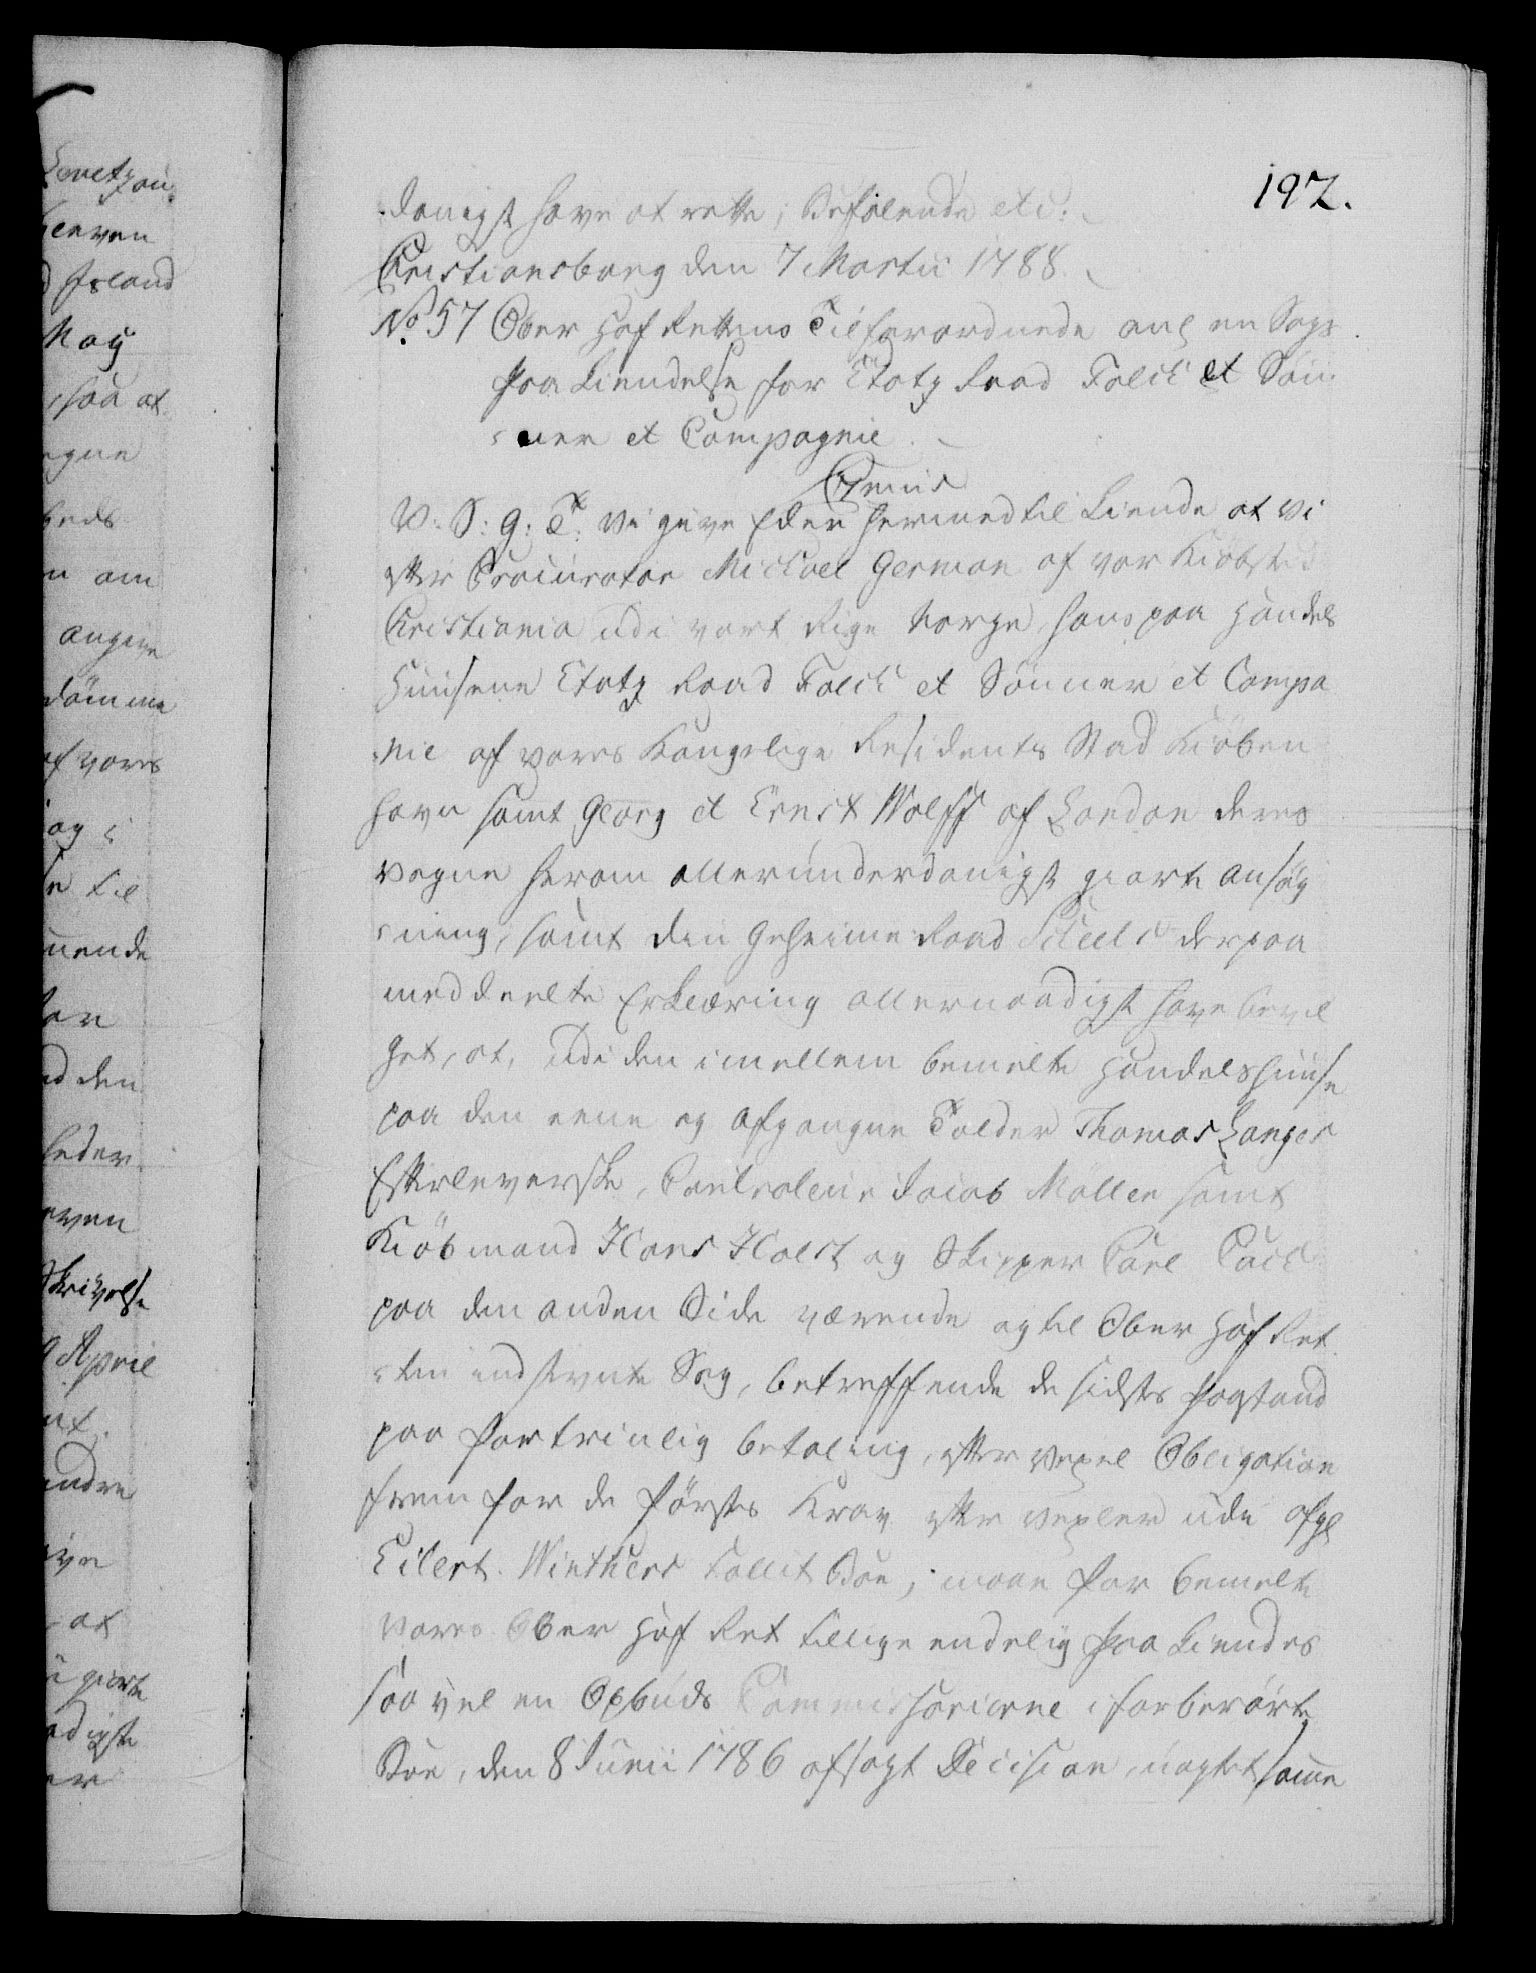 192.
danigst have at rette; Befalende etc:
Christiansborg den 7 Martii 1788.
No 57 Ober Hof Rettens Tilforordnede ang en Sags
Paa Kiendelse for Etatz Raad Falch et Søn
ner et Compagnie
Cujus
V: S: G: T: Vi give Eder hermed til Kiende at vi
efter Procurator Michael German af vor Kiøbsted
Christiania udi vort Rige Norge, hans paa Handels
Huusene Etatz Raad Falch et Sønner et Compa
nie af vores Kongelige Residents Stad Kiøben
havn samt Georg et Ernst Wolff af London deres
vegne herom allerunderdanigst giorte Ansøg
ning, samt den Geheime Raad Scheel derpaa
meddeelte Erklæring allernaadigst have bevil
get, at, udi den imellem bemelte Handelshuuse
paa den eene og afgangne Tolder Thomas Langes
Efterleverske, Controleur Jacob Møller samt
Kiøbmand Hans Holst og Skipper Carl
paa den anden Side værende og til Ober Hof Ret
ten indstevnte Sag, betreffende de sidstes Paastand
paa fortrinlig betaling, efter Vexel Obligation
frem for de førstes Krav efter Vexler udi afg
Eilert Winthers Fallit Boe, maae for bemelte
vores Ober Hof Ret tillige endelig paa Kiendes
saavel en Opbuds Commissarierne i forberørte
Boe, den 8 Junii 1786 afsagt Decision, uagtet samme